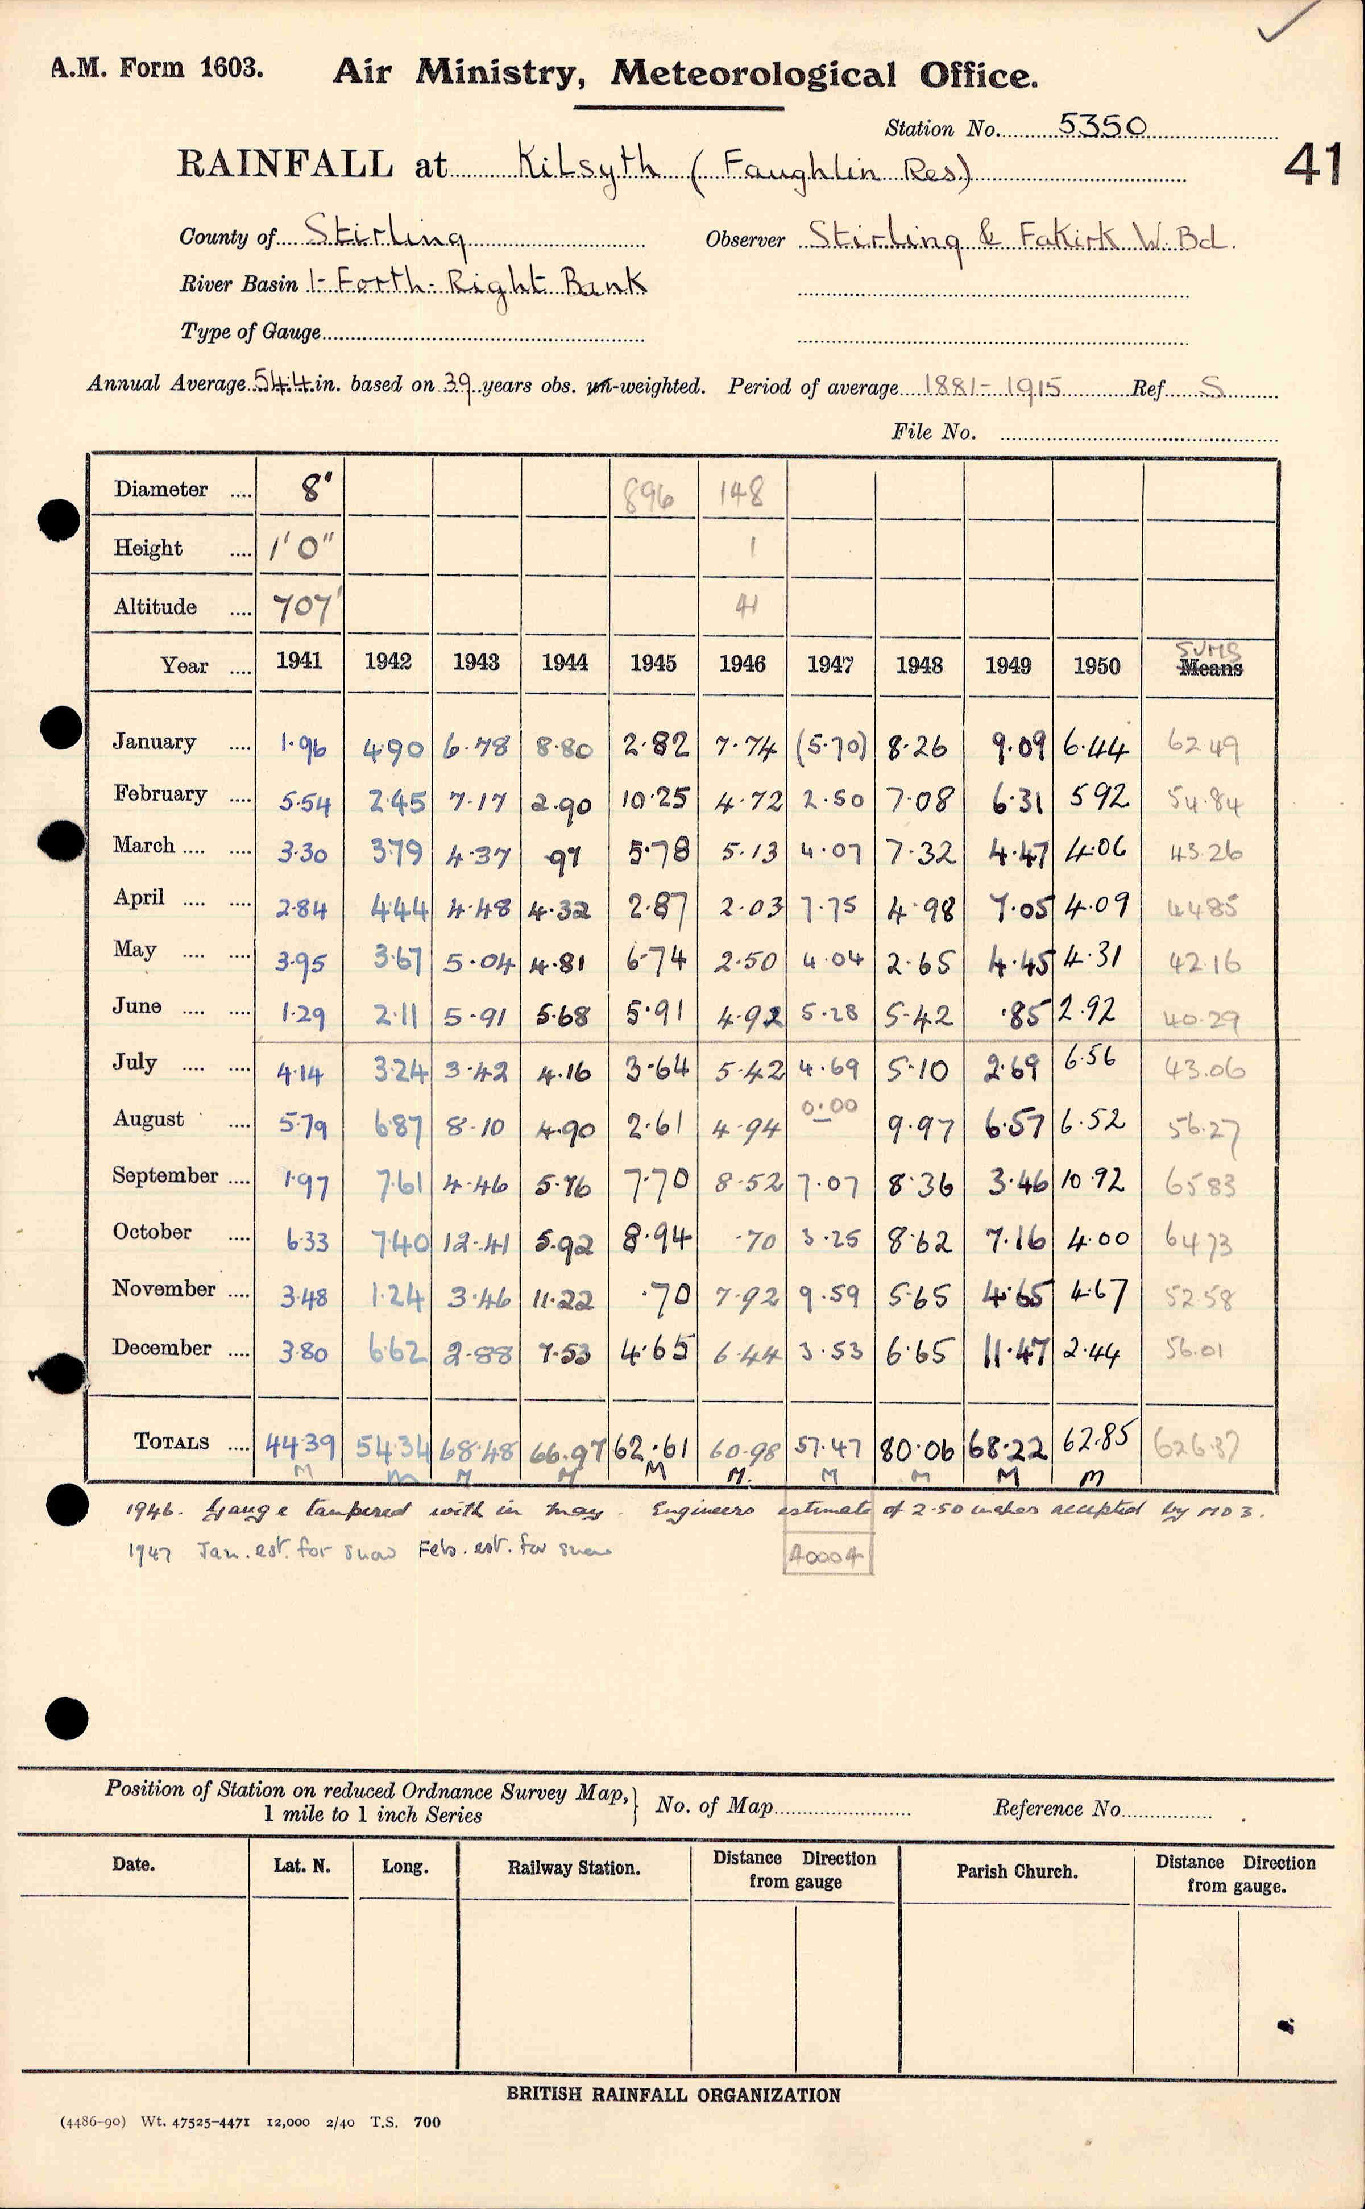 A.M. Form 1603. Air Ministry, Meteorological Office.
Station No. 5350
41
RAINFALL at Kilsyth (Faughlin Res)
County of Stirling Observer Stirling & Fakirk W. Bd.
River Basin 1- Forth- Right Bank
Type of Gauge
Annual Average 54.4 in. based on 39 years obs. un-weighted. Period of average 1881-1915 Ref S
File No.
Diameter .... 8" 896 148
Height .... 1'0" 1
Altitude .... 707' 41
SUMS
Year .... 1941 1942 1943 1944 1945 1946 1947 1948 1949 1950 Means
January .... 1.96 4.90 6.78 8.80 2.82 7.74 (5.70) 8.26 9.09 6.44 62.49
February .... 5.54 2.45 7.17 2.90 10.25 4.72 2.50 7.08 6.31 5.92 54.84
March .... .... 3.30 3.79 4.37 .97 5.78 5.13 4.07 7.32 4.47 4.06 43.26
April .... .... 2.84 4.44 4.48 4.32 2.87 2.03 7.75 4.98 7.05 4.09 44.85
May .... .... 3.95 3.67 5.04 4.81 6.74 2.50 4.04 2.65 4.45 4.31 42.16
June .... .... 1.29 2.11 5.91 5.68 5.91 4.92 5.28 5.42 .85 2.92 40.29
July .... .... 4.14 3.24 3.42 4.16 3.64 5.42 4.69 5.10 2.69 6.56 43.06
August .... 5.79 6.87 8.10 4.90 2.61 4.94 0.00 9.97 6.57 6.52 56.27
September .... 1.97 7.61 4.46 5.76 7.70 8.52 7.07 8.36 3.46 10.92 65.83
October .... 6.33 7.40 12.41 5.92 8.94 .70 3.25 8.62 7.16 4.00 64.73
November .... 3.48 1.24 3.46 11.22 .70 7.92 9.59 5.65 4.65 4.67 52.58
December .... 3.80 6.62 2.88 7.53 4.65 6.44 3.53 6.65 11.47 2.44 56.01
TOTALS .... 44.39 54.34 68.48 66.97 62.61 60.98 57.47 80.06 68.22 62.85 626.37
M m M M M M. M M M m
1946. Gauge tampered with in May. Engineers estimate of 2.50 inches accepted by MO3.
1947 Jan. est. for snow Feb. est. for snow
40004
Position of Station on reduced Ordnance Survey Map,
1 mile to 1 inch Series
No. of Map Reference No.
Date. Lat. N. Long. Railway Station. Distance Direction from gauge Parish Church. Distance Direction from gauge.
BRITISH RAINFALL ORGANIZATION
(4486-90) Wt. 47525-4471 12,000 2/40 T.S. 700